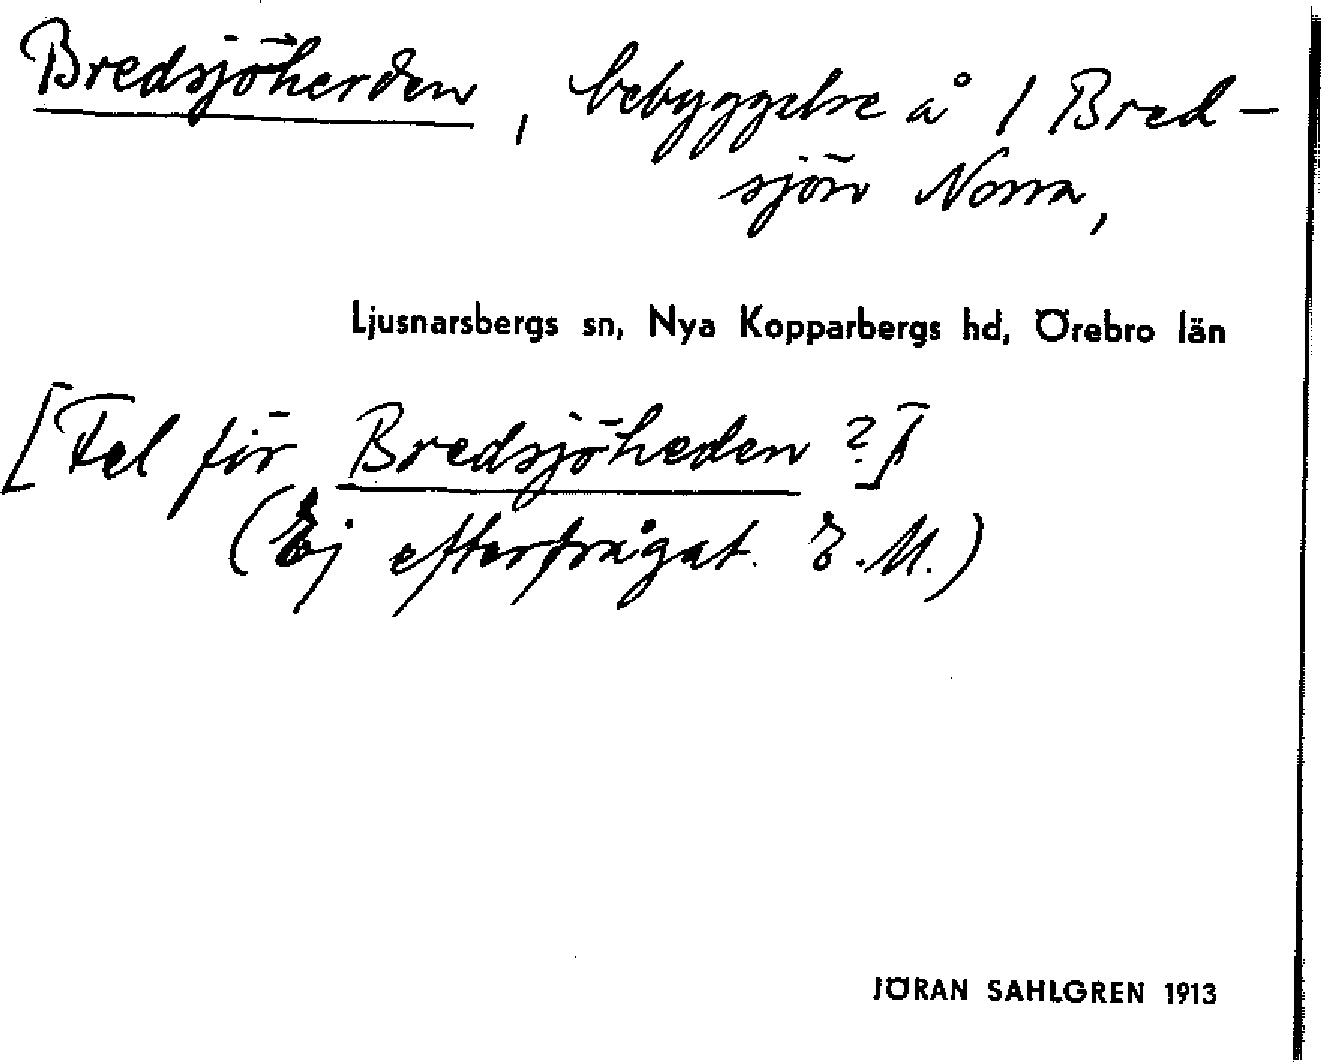 Bredsjöherden, bebyggelse å 1 Bred-
sjön Norra,
Ljusnarsbergs sn, Nya Kopparbergs hd, Örebro län
[Fel för Bredsjöheden?]
(Ej efterfrågat. E.M.)
JÖRAN SAHLGREN 1913